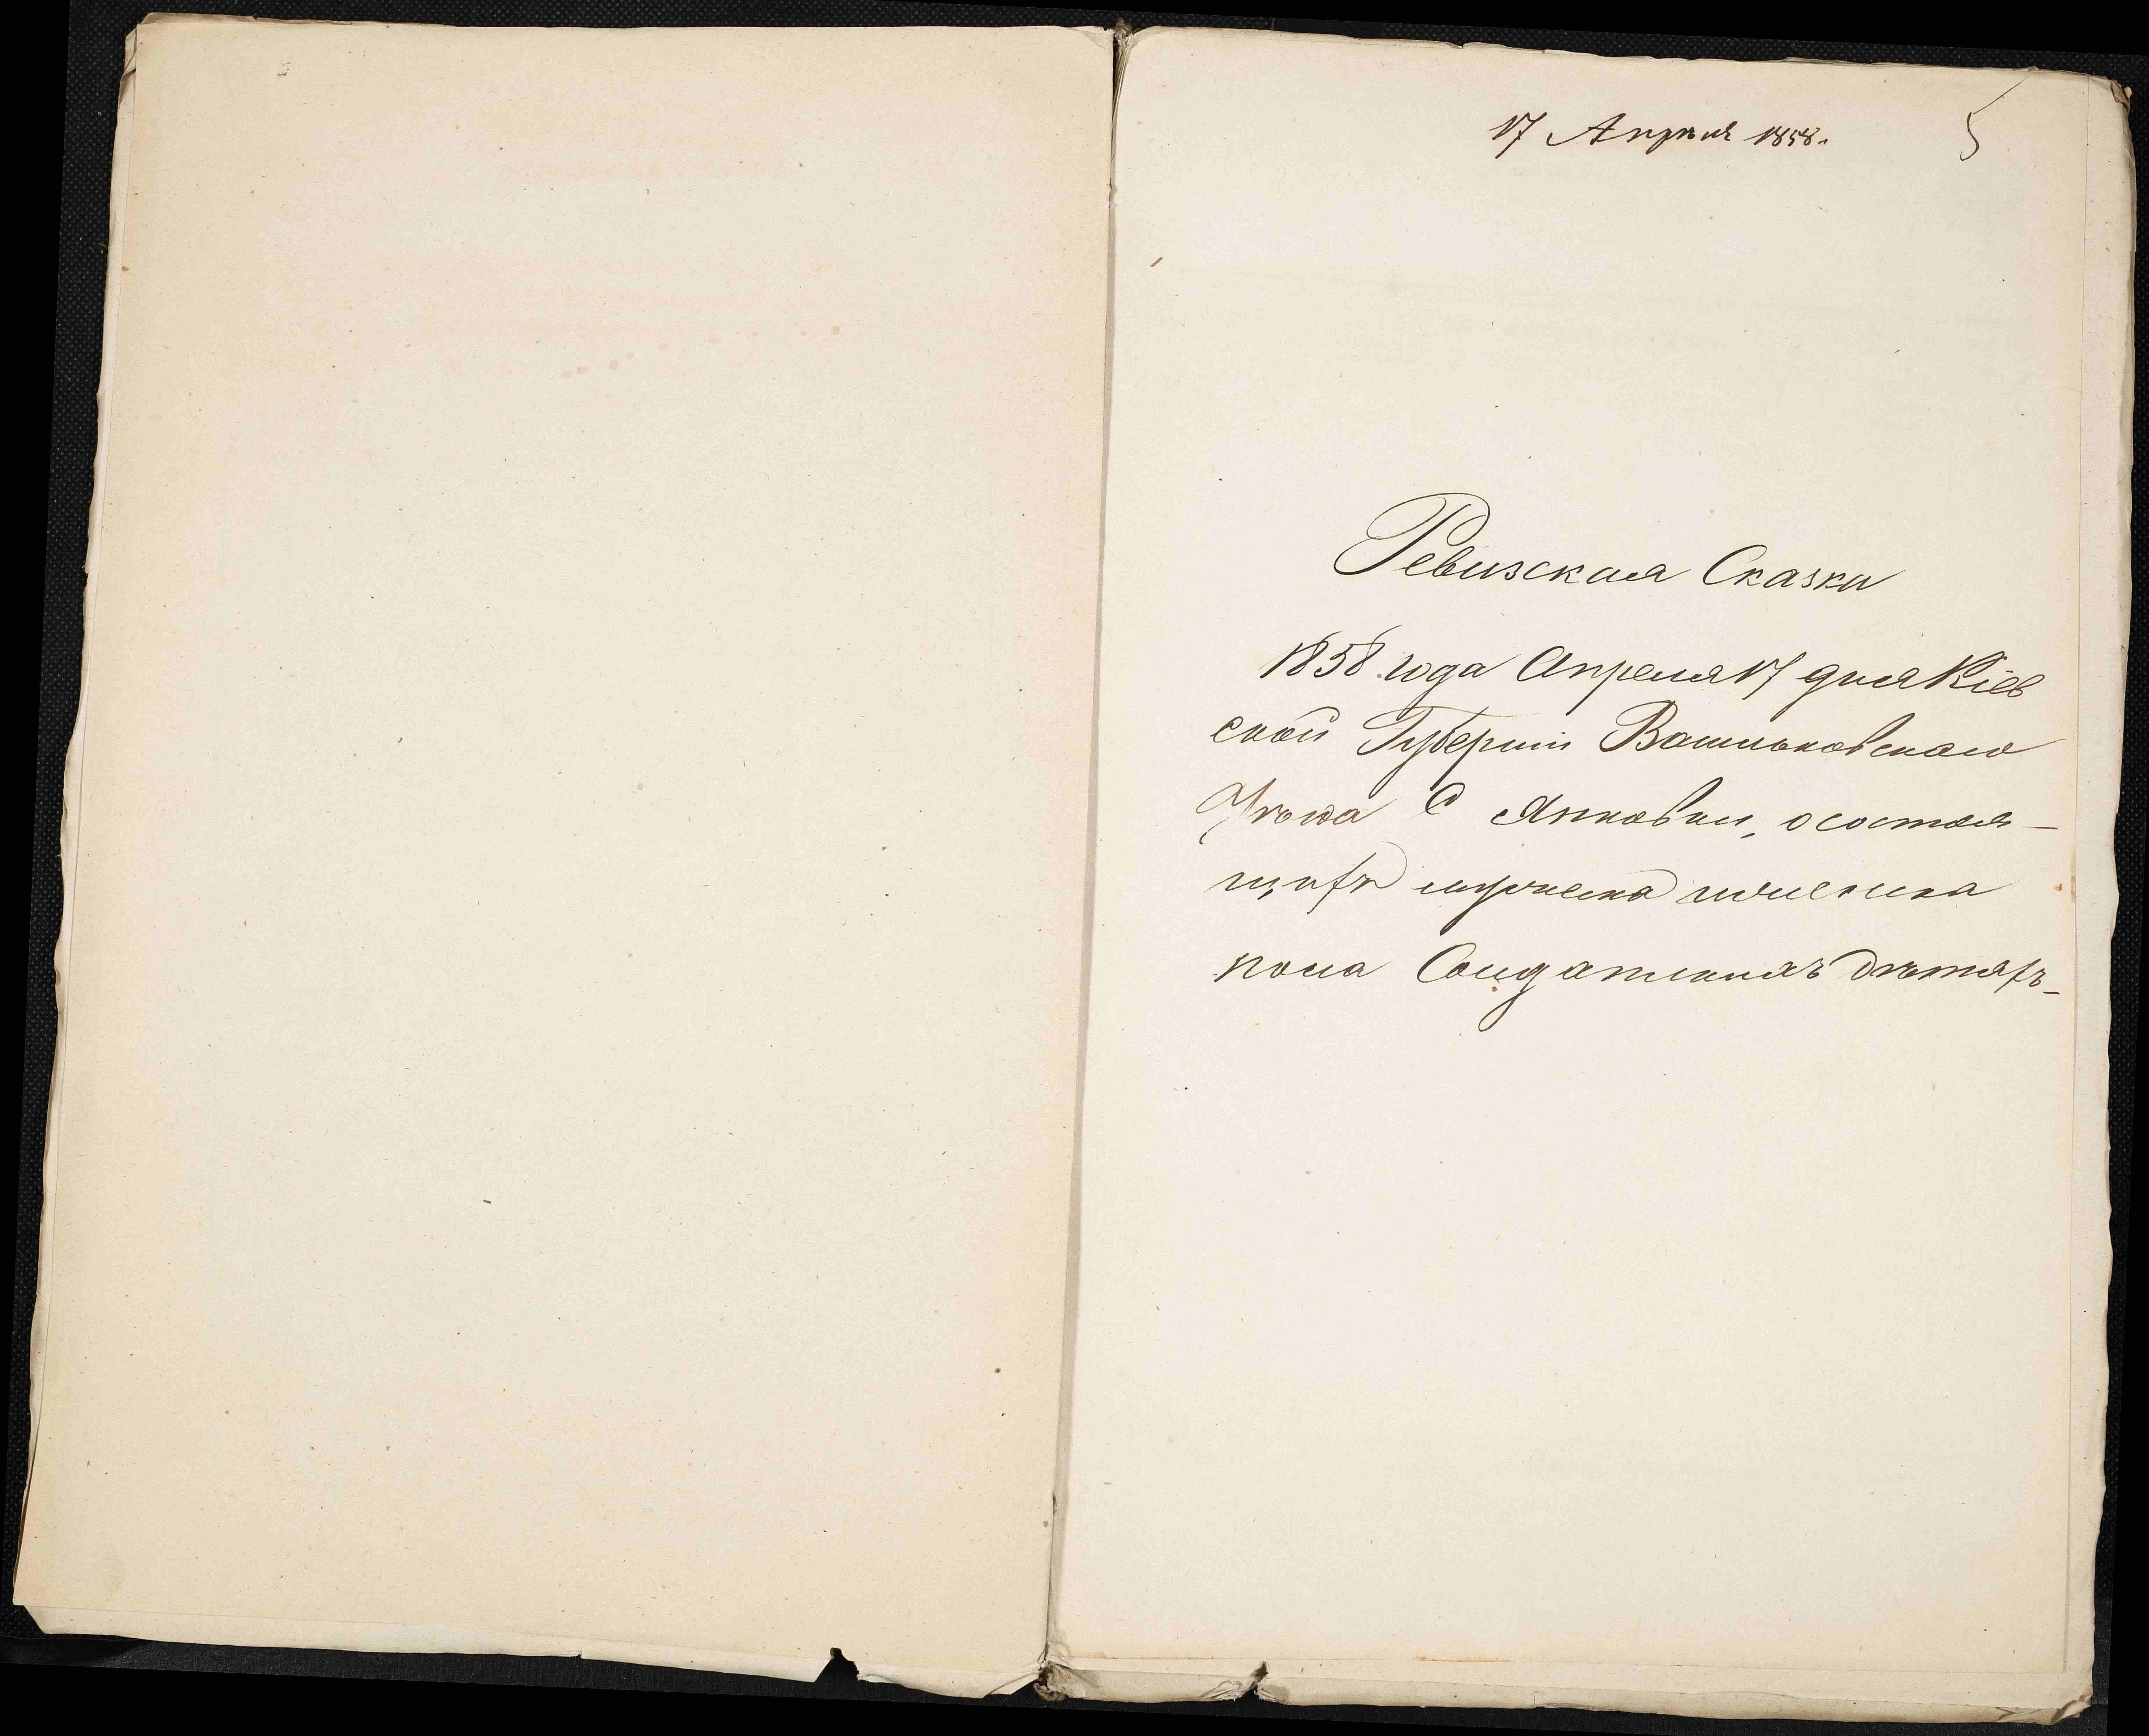 17 Апрѣля 1858.
5
Ревизская Сказка
1858 года Апреля 17 дня Кіев
ской Губерніи Васильковскаго
Уѣзда С Янковки, о состоя–
щихъ мужеска и женска
пола Солдатскихъ дѣтяхъ–